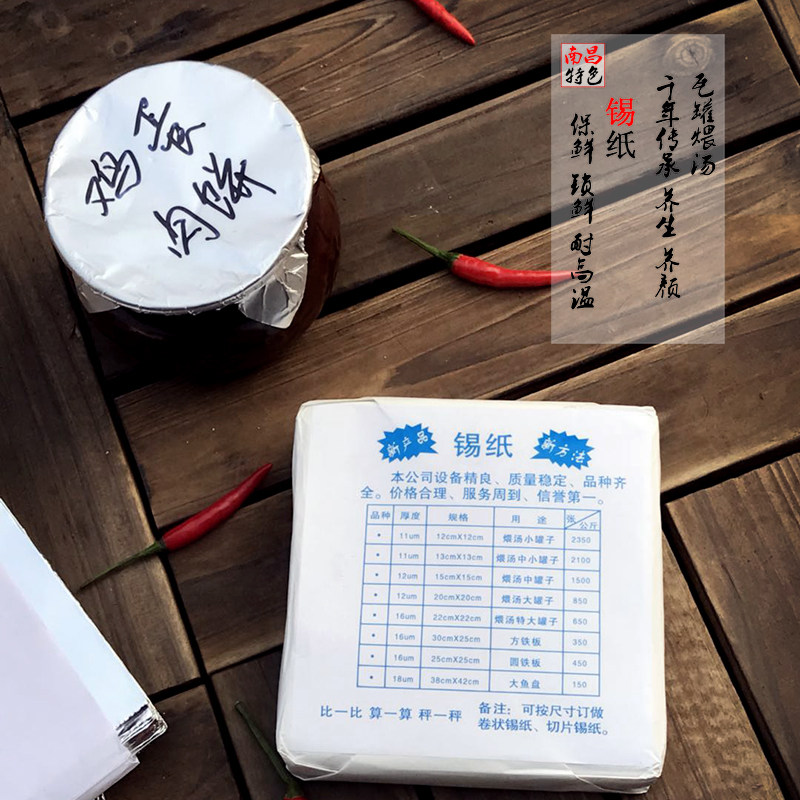 鸡蛋
肉饼
南昌
特色
瓦罐煨汤
千年传承 养生 养颜
锡纸
保鲜 锁鲜 耐高温
新产品 锡纸 新方法
本公司设备精良、质量稳定、品种齐
全。价格合理、服务周到、信誉第一。
品种 厚度 规格 用途 张 公斤
• 11um 12cmX12cm 煨汤小罐子 2350
• 11um 13cmX13cm 煨汤中小罐子 2100
• 12um 15cmX15cm 煨汤中罐子 1500
• 12um 20cmX20cm 煨汤大罐子 850
• 16um 22cmX22cm 煨汤特大罐子 650
• 16um 30cmX25cm 方铁板 350
• 16um 25cmX25cm 圆铁板 450
• 18um 38cmX42cm 大鱼盘 150
比一比 算一算 秤一秤
备注：可按尺寸订做
卷状锡纸、切片锡纸。